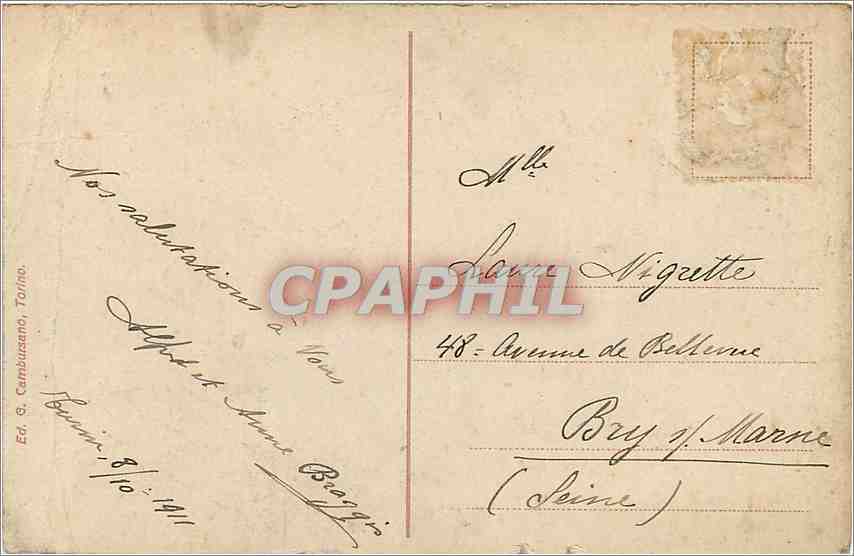 Nos salutations à Vous
Alfr et Anne Braggio
Turin, 8/10 - 1911
Ed. G. Cambursano, Torino.
Mlle
Laure Nigrette
48 = Avenue de Bellevue
Bry s/ Marne
(Seine)
CPAPHIL